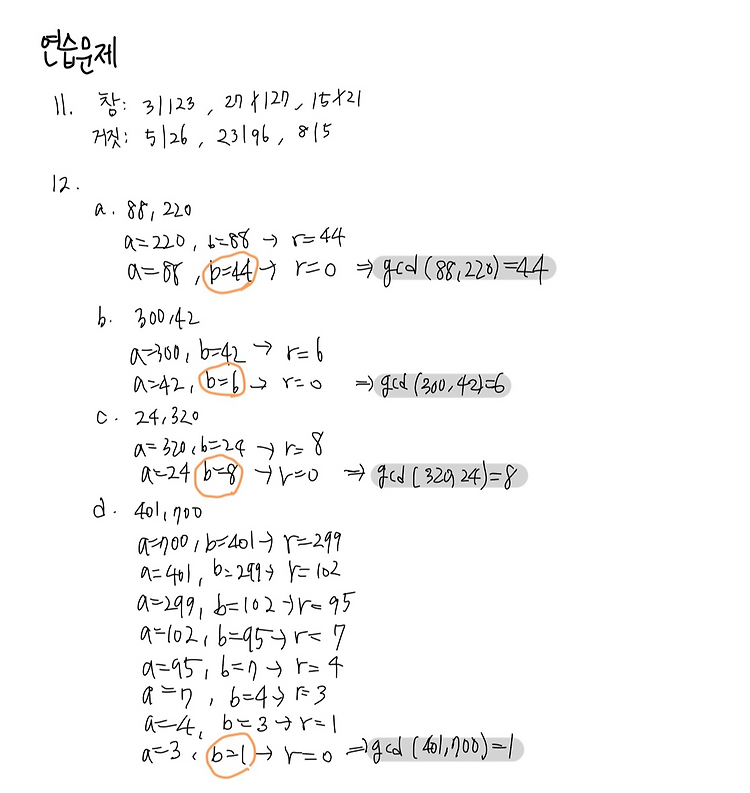 연습문제
11. 참: 3|123, 27∤127, 15∤21
거짓: 5|26, 23|96, 8|5
12.
a. 88, 220
a=220, b=88 → r=44
a=88, b=44 → r=0 ⇒ gcd(88,220)=44
b. 300,42
a=300, b=42 → r=6
a=42, b=6 → r=0 ⇒ gcd(300,42)=6
c. 24,320
a=320, b=24 → r=8
a=24 b=8 → r=0 ⇒ gcd(320,24)=8
d. 401,700
a=700, b=401 → r=299
a=401, b=299 → r=102
a=299, b=102 → r=95
a=102, b=95 → r=7
a=95, b=7 → r=4
a=7, b=4 → r=3
a=4, b=3 → r=1
a=3, b=1 → r=0 ⇒ gcd(401,700)=1